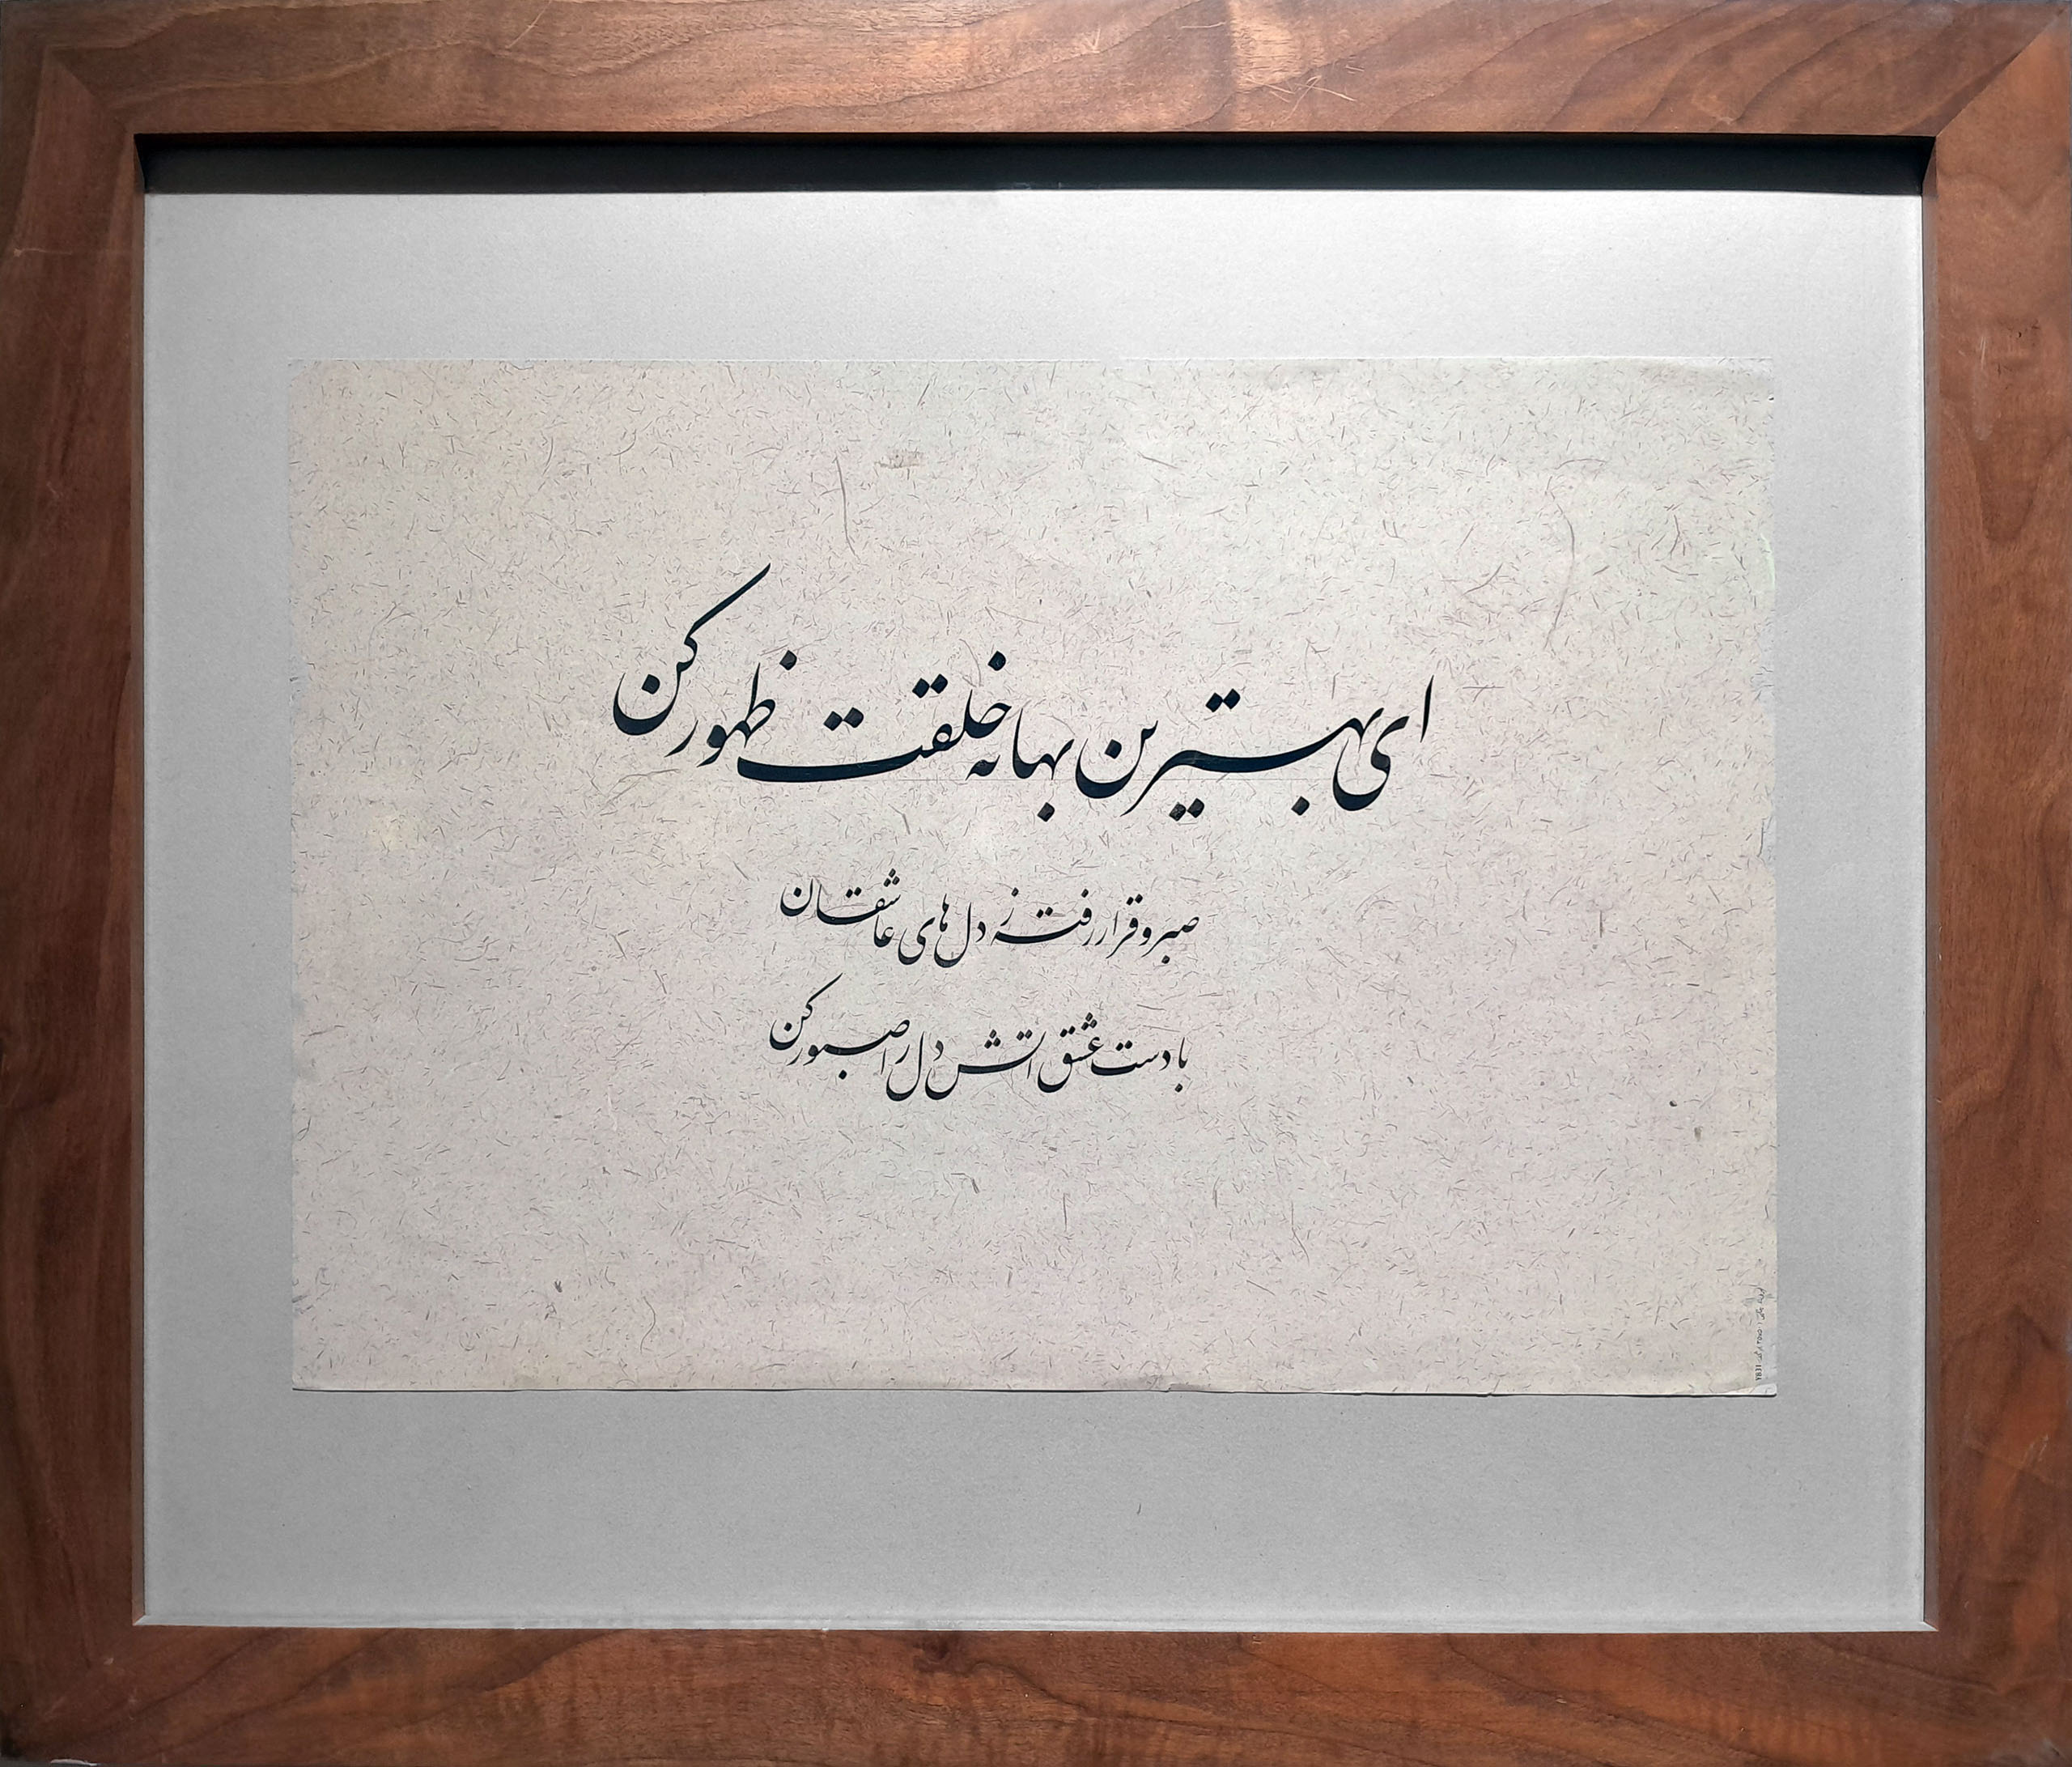 ای بهترین بهانه خلقت ظهور کن
صبر و قرار رفته ز دل های عاشقان
با دست عشق اتش دل را صبور کن